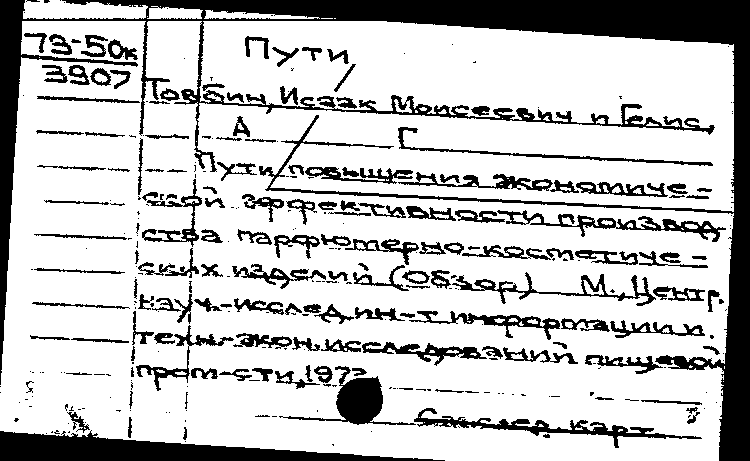 73-50к
3907
Пути
Товбин, Исаак Моисеевич и Гелис,
А Г
Пути повышения экономиче-
ской эффективности производ-
ства парфюмерно-косметиче-
ских изделий (Обзор) М., Центр.
науч.-исслед. ин-т информации и
техн.-экон. исследований пищевой
пром-сти, 1973
См. след. карт.